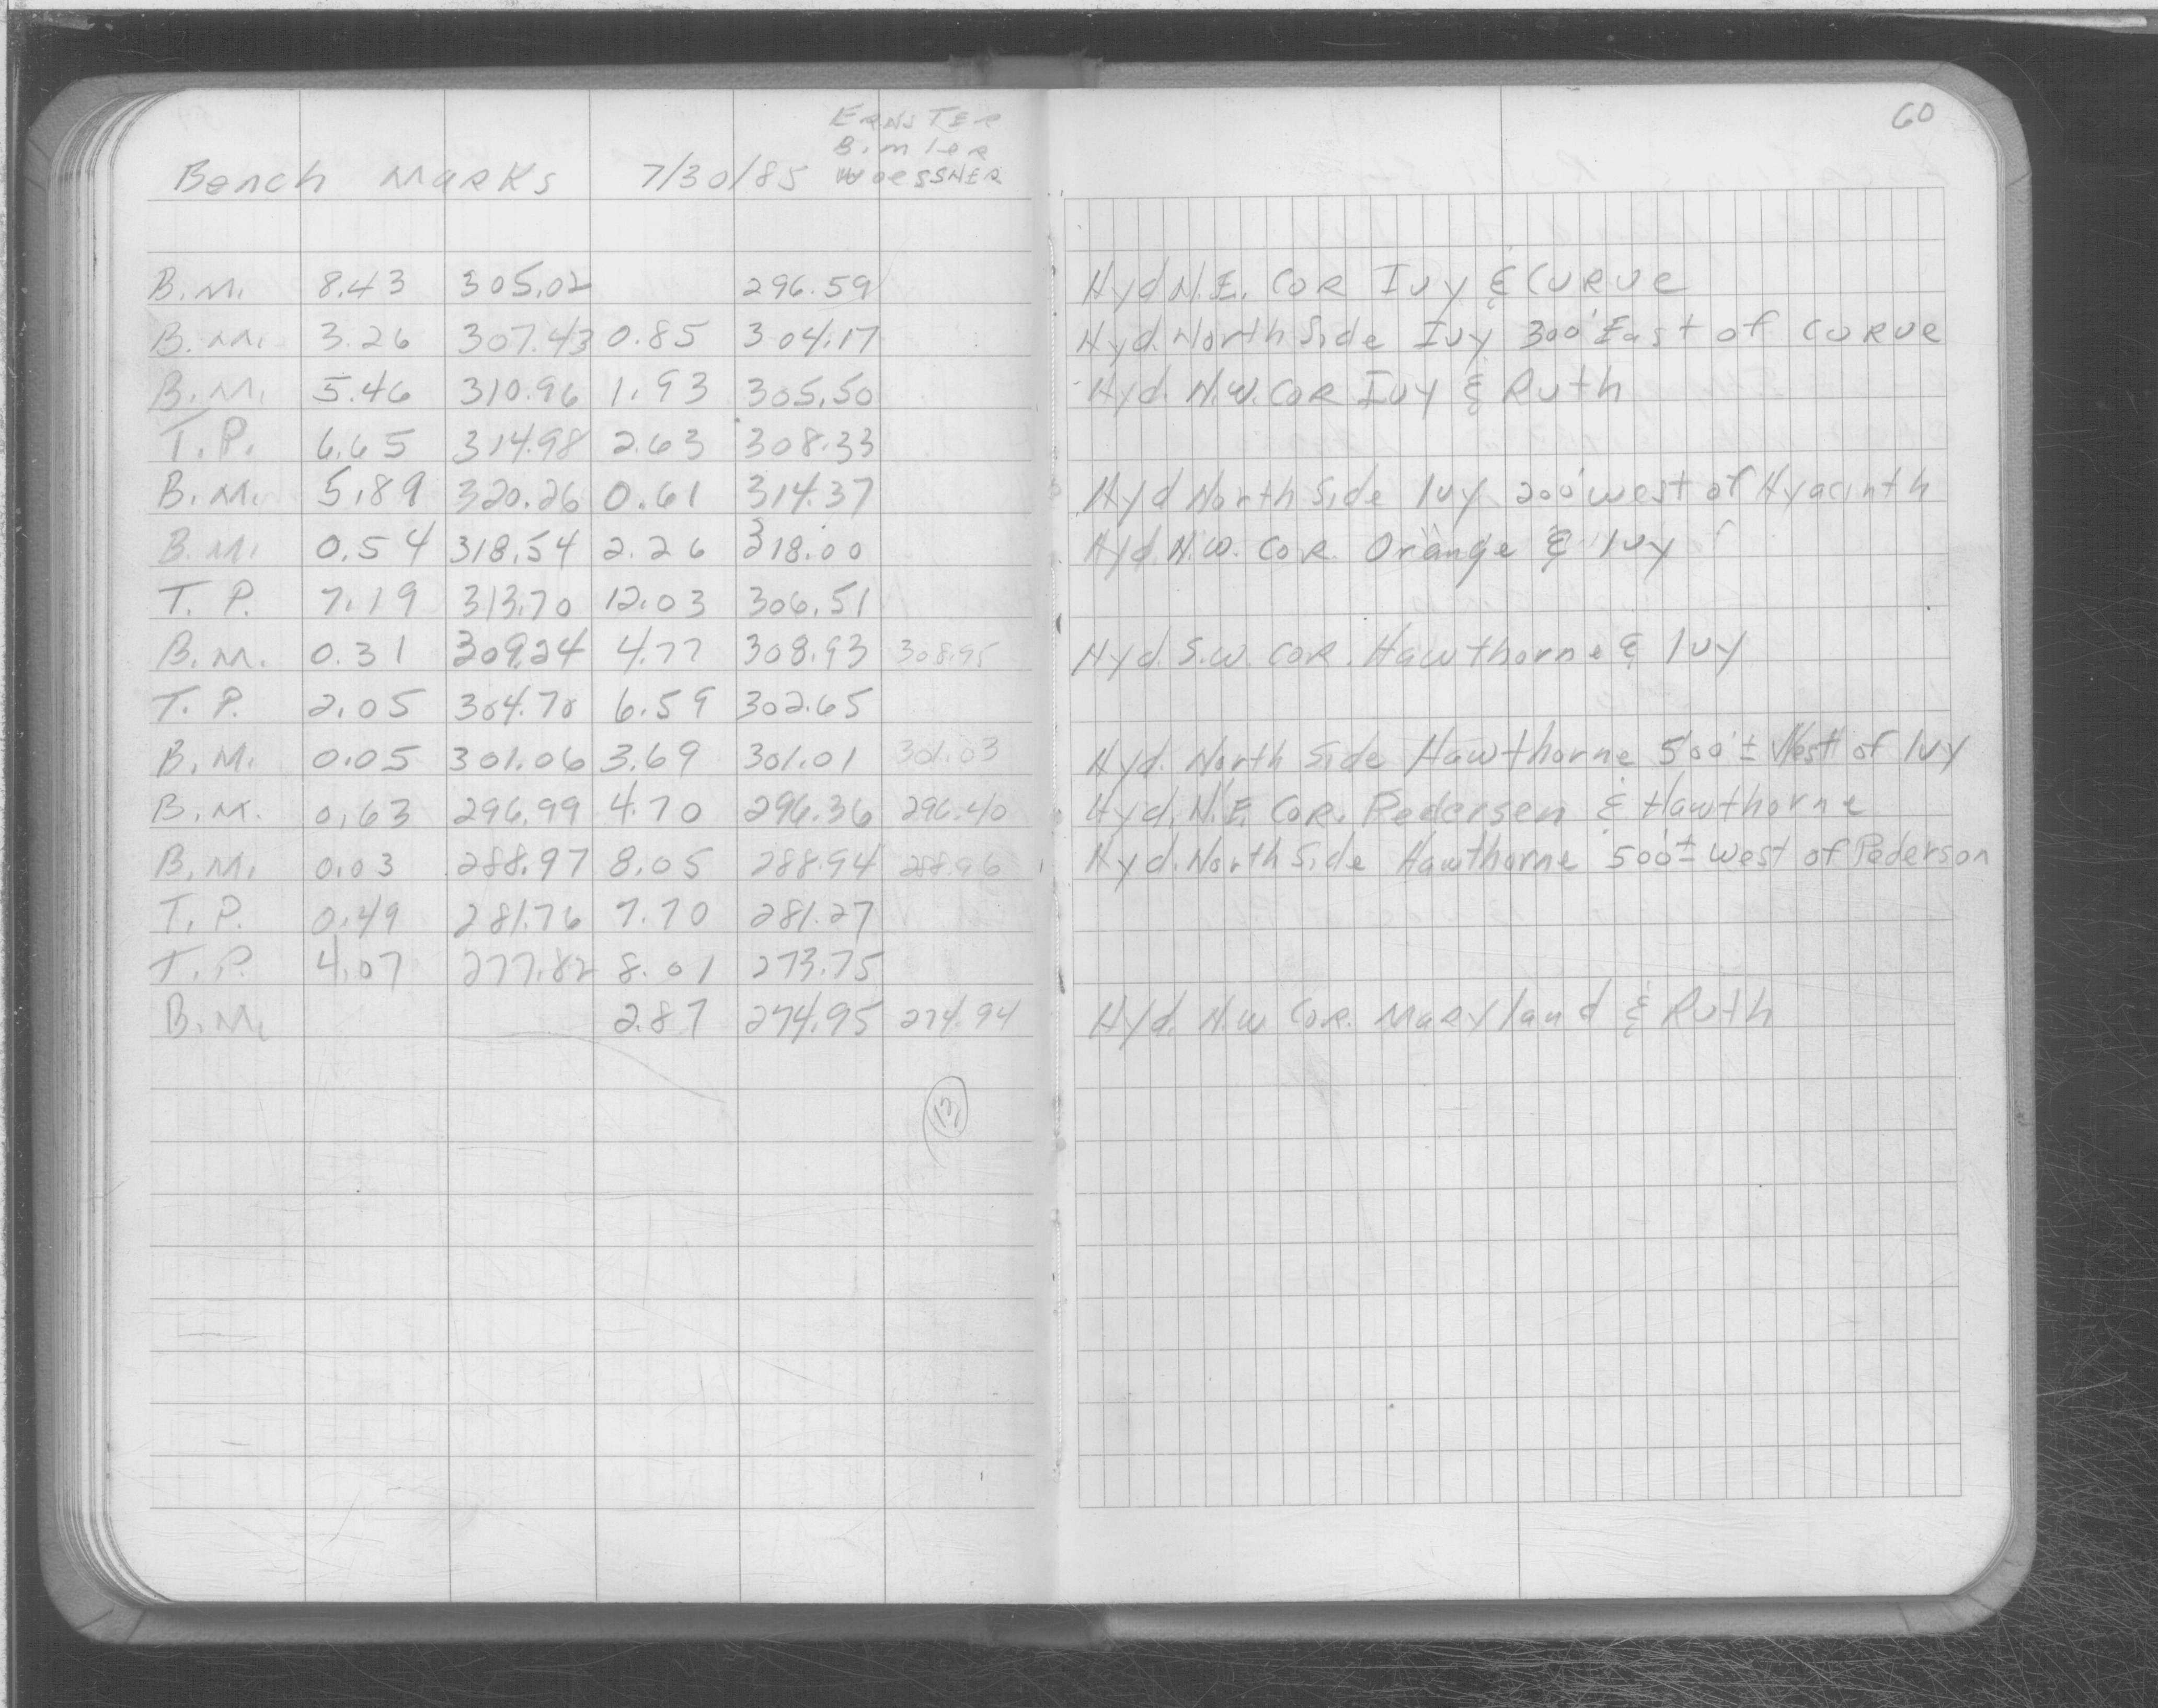 60
ERNSTER
Bimler
Bench Marks 7/30/85 WOESSNER
B.M. 8.43 305.02 296.59 Hyd N.E. COR Ivy & CURVE
B.M. 3.26 307.43 0.85 304.17 Hyd. North Side Ivy 300' East of CURVE
B.M. 5.46 310.96 1.93 305.50 Hyd. N.W. COR Ivy & Ruth
T.P. 6.65 314.98 2.63 308.33
B.M. 5.89 320.26 0.61 314.37 Hyd North Side Ivy 200' west of Hyacinth
B.M. 0.54 318.54 2.26 318.00 Hyd. N.W. COR. Orange & Ivy
T.P. 7.19 313.70 12.03 306.51
B.M. 0.31 309.24 4.77 308.93 308.95 Hyd. S.W. COR. Hawthorne & Ivy
T.P. 2.05 304.70 6.59 302.65
B.M. 0.05 301.06 3.69 301.01 301.03 Hyd. North Side Hawthorne 500'± West of Ivy
B.M. 0.63 296.99 4.70 296.36 296.40 Hyd. N.E. COR. Pedersen & Hawthorne
B.M. 0.03 288.97 8.05 288.94 288.96 Hyd. North Side Hawthorne 500'± west of Pederson
T.P. 0.49 281.76 7.70 281.27
T.P. 4.07 277.82 8.01 273.75
B.M. 2.87 274.95 274.94 Hyd. N.W COR. Maryland & Ruth